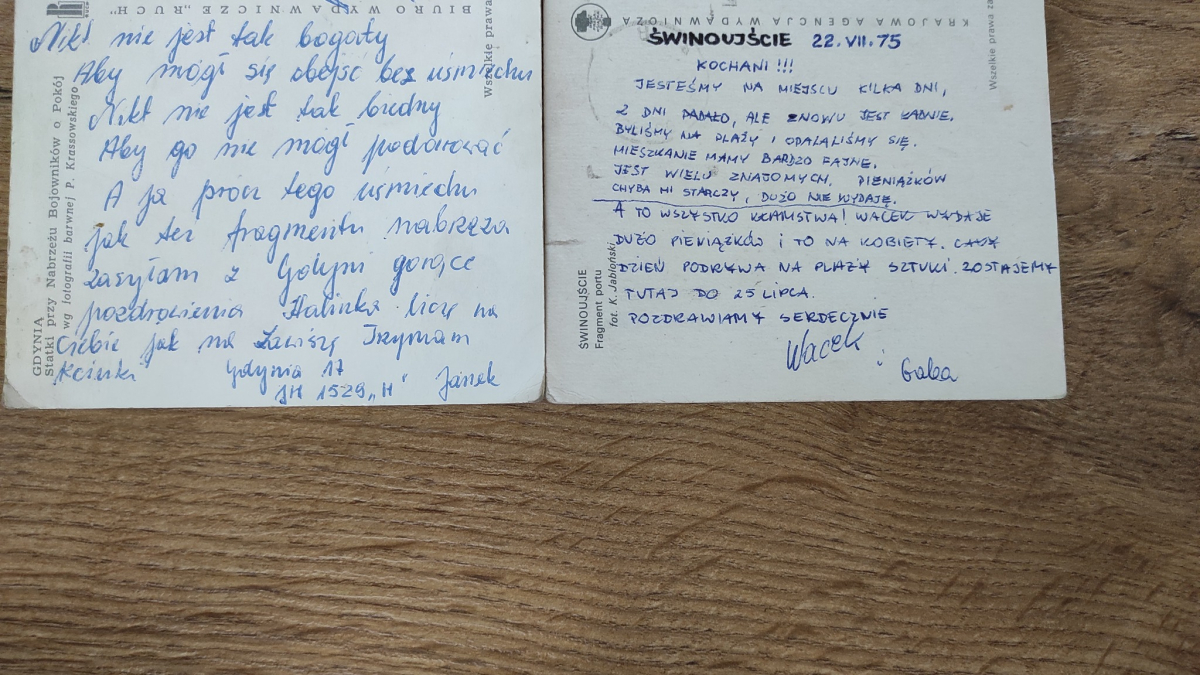 BIURO WYDAWNICZE „RUCH"
Wszelkie prawa
GDYNIA
Statki przy Nabrzeżu Bojowników o Pokój
wg fotografii barwnej P. Krassowskiego
Nikt nie jest tak bogaty
Aby mógł się obejść bez uśmiechu
Nikt nie jest tak biedny
Aby go nie mógł podarować
A ja prócz tego uśmiechu
jak ten fragmentu nabrzeża
zasyłam z Gdyni gorące
pozdrowienia Halinko liczę na
Ciebie jak na Zawiszę Trzymam
Gdynia 17
JH 1529 „H" Janek
KRAJOWA AGENCJA WYDAWNICZA
Wszelkie prawa za
ŚWINOUJŚCIE
Fragment portu
fot. K. Jabłoński
ŚWINOUJŚCIE 22.VII.75
KOCHANI !!!
JESTEŚMY NA MIEJSCU KILKA DNI,
2 DNI PADAŁO, ALE ZNOWU JEST ŁADNIE.
BYLIŚMY NA PLAŻY I OPALALIŚMY SIĘ.
MIESZKANIE MAMY BARDZO FAJNE.
JEST WIELU ZNAJOMYCH, PIENIĄŻKÓW
CHYBA MI STARCZY, DUŻO NIE WYDAJĘ.
A TO WSZYSTKO KŁAMSTWA! WACEK WYDAJE
DUŻO PIENIĄŻKÓW I TO NA KOBIETY. CAŁY
DZIEŃ PODRYWA NA PLAŻY SZTUKI. ZOSTAJEMY
TUTAJ DO 25 LIPCA.
POZDRAWIAMY SERDECZNIE
Wacek
i Gaba